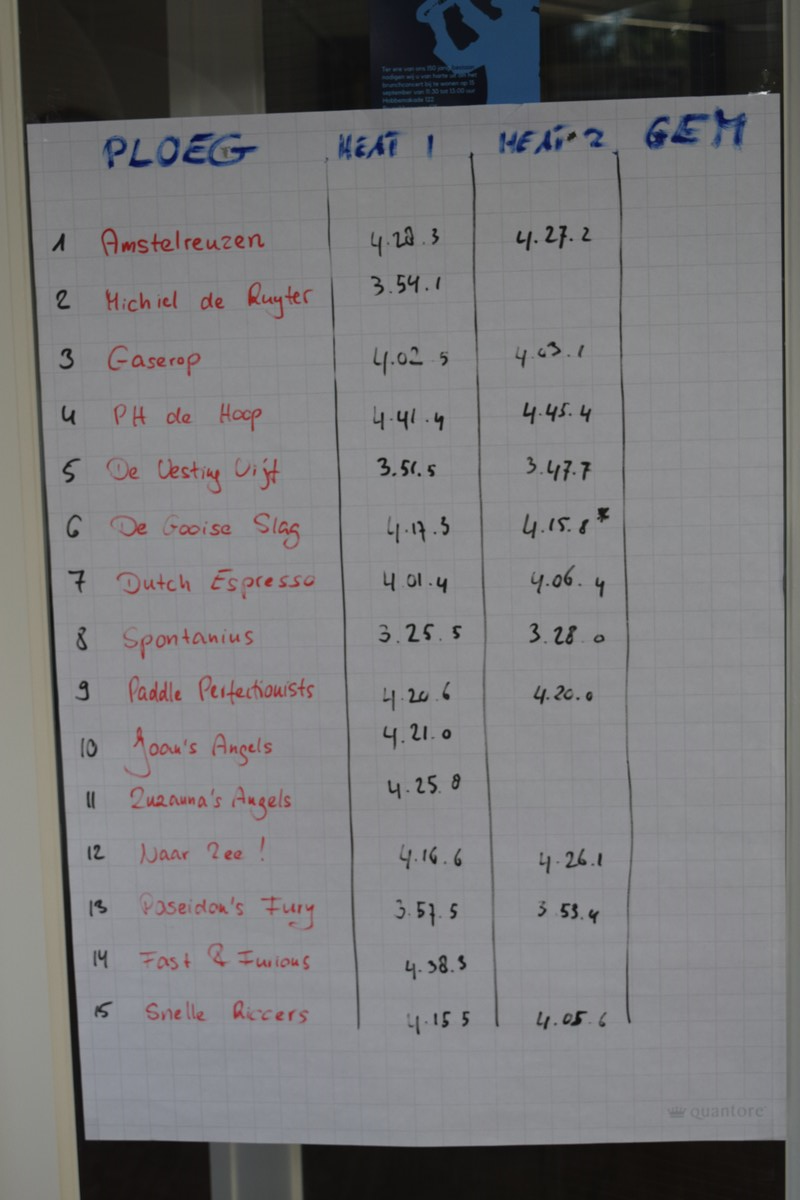 Ter ere van ons 150 jarig bestaan
nodigen wij u van harte uit om het
brunchconcert bij te wonen op 15
september van 11:30 tot 13:00 uur
Hobbemakade 122
PLOEG HEAT 1 HEAT 2 GEM
1 Amstelreuzen 4.28.3 4.27.2
2 Michiel de Ruyter 3.54.1
3 Gaserop 4.02 5 4.03.1
4 PH de Hoop 4.41.4 4.45.4
5 De Vesting Vijf 3.51.5 3.47.7
6 De Gooise Slag 4.17.3 4.15.8*
7 Dutch Espresso 4.01.4 4.06.4
8 Spontanius 3.25.5 3.28 0
9 Paddle Perfectionists 4.20.6 4.20.0
10 Joan's Angels 4.21.0
11 Zuzanna's Angels 4.25.8
12 Naar Zee ! 4.16.6 4.26.1
13 Poseidon's Fury 3.57.5 3 53.4
14 Fast & Furious 4.38.3
15 Snelle Riccers 4.15 5 4.05.6
quantore